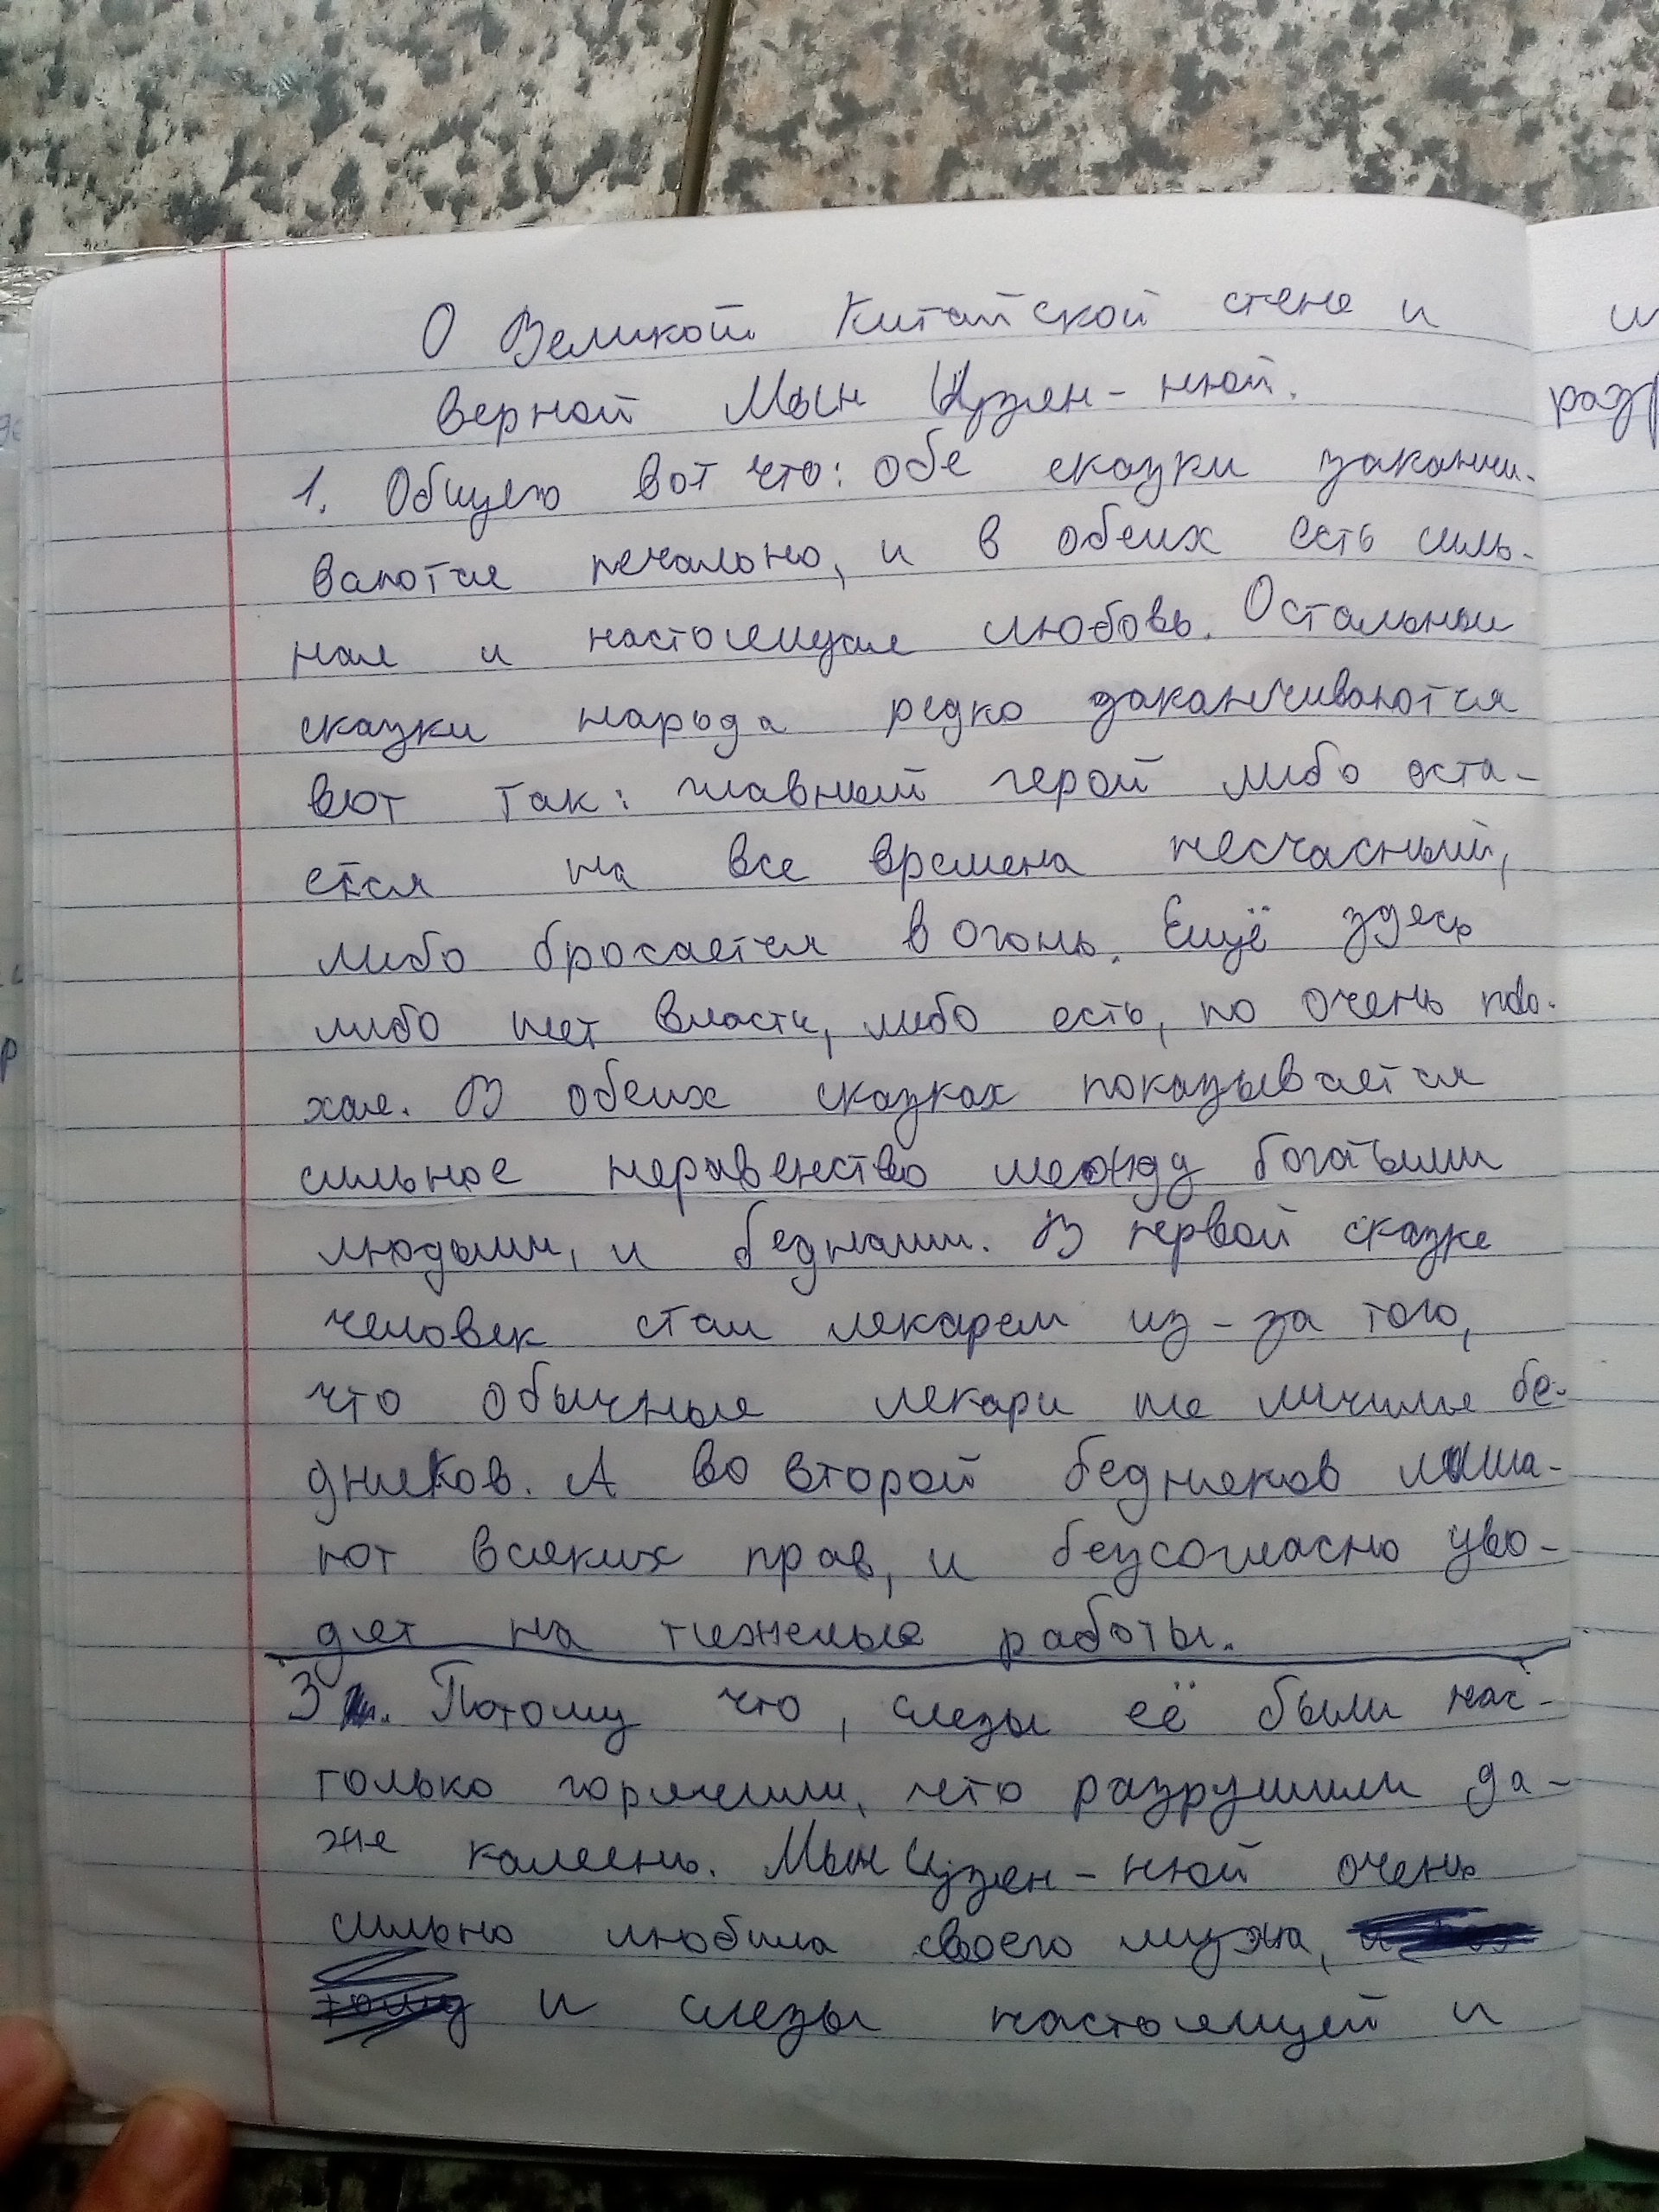 О Великой Китайской стене и
верной Мын Цзян-нюй.
1. Общего вот что: обе сказки заканчи-
ваются печально, и в обеих есть силь-
ная и настоящая любовь. Остальные
сказки народа редко заканчиваются
вот так: главный герой либо оста-
ётся на все времена несчасный,
либо бросается в огонь. Ещё здесь
либо нет власти, либо есть, но очень пло-
хая. В обеих сказках показывается
сильное неравенство между богатыми
людьми, и бедными. В первой сказке
человек стал лекарем из-за того,
что обычные лекари не личили бе-
дняков. А во второй бедняков лиша-
ют всяких прав, и безсогласно уво-
дят на тяжелые работы.
3. Потому что, слезы её были нас-
только горячими, что разрушили да-
же камень. Мын Цзян-нюй очень
сильно любила своего мужа,
и слезы настоящей и
и
разр